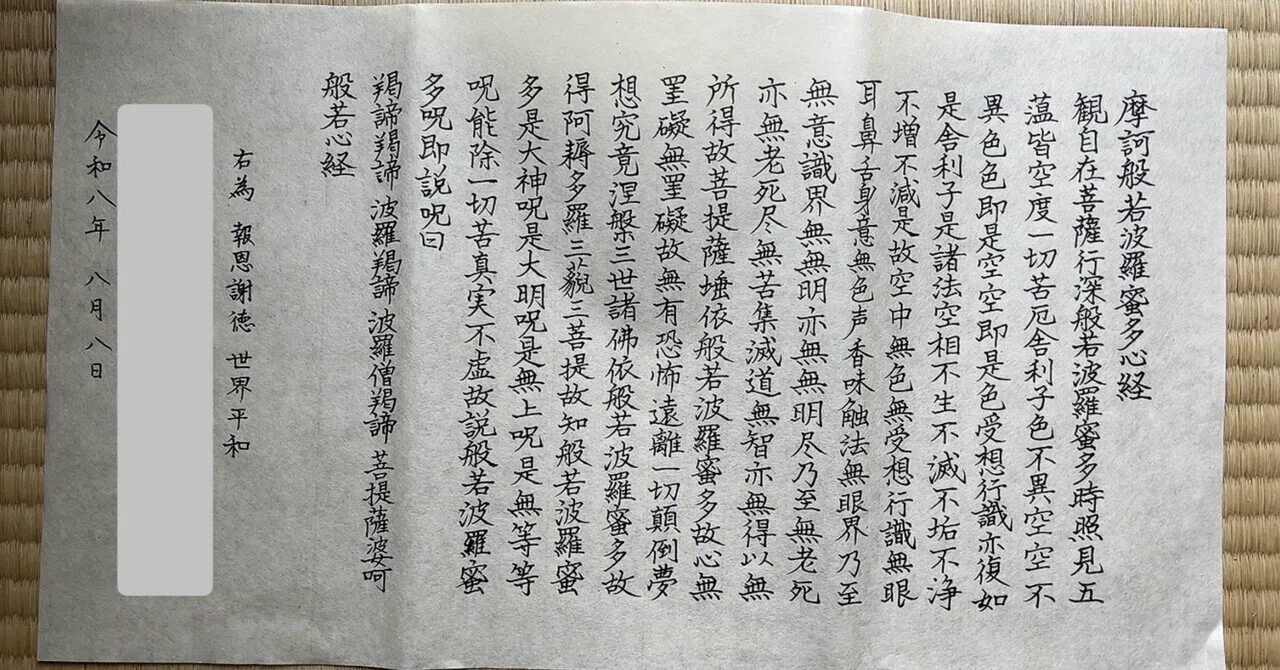 摩訶般若波羅蜜多心経
観自在菩薩行深般若波羅蜜多時照見五
薀皆空度一切苦厄舎利子色不異空空不
異色色即是空空即是色受想行識亦復如
是舎利子是諸法空相不生不滅不垢不浄
不増不減是故空中無色無受想行識無眼
耳鼻舌身意無色声香味触法無眼界乃至
無意識界無無明亦無無明尽乃至無老死
亦無老死尽無苦集滅道無智亦無得以無
所得故菩提薩埵依般若波羅蜜多故心無
罣礙無罣礙故無有恐怖遠離一切顛倒夢
想究竟涅槃三世諸佛依般若波羅蜜多故
得阿耨多羅三藐三菩提故知般若波羅蜜
多是大神呪是大明呪是無上呪是無等等
呪能除一切苦真実不虚故説般若波羅蜜
多呪即説呪曰
羯諦羯諦 波羅羯諦 波羅僧羯諦 菩提薩婆呵
般若心経
右為 報恩謝徳 世界平和
令和八年 八月 八日